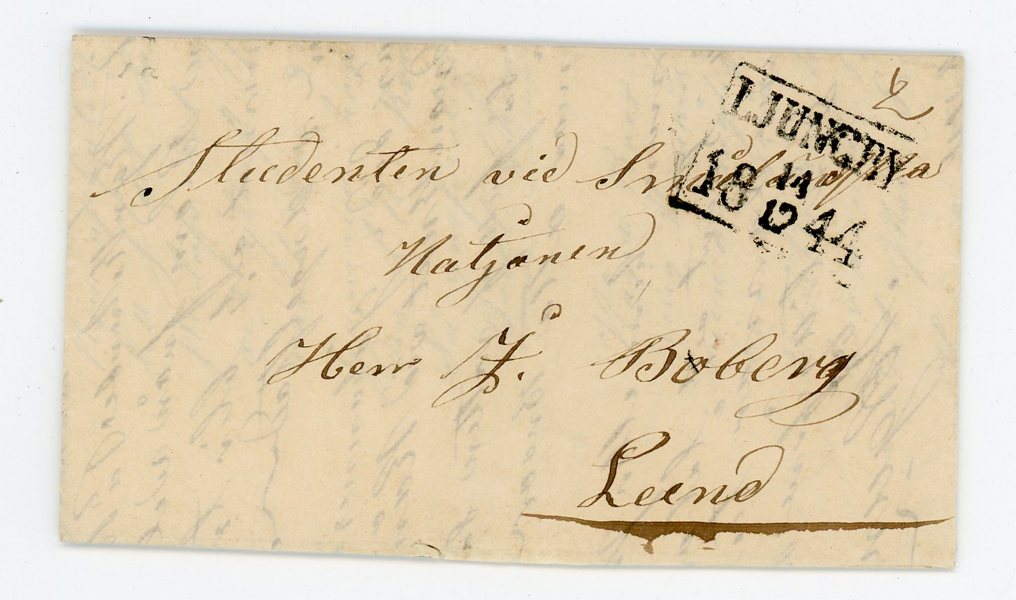 2
LJUNGBY
18 14 44
12
Studenten vid Småländska
Natjonen
Herr J. Boberg
Lund